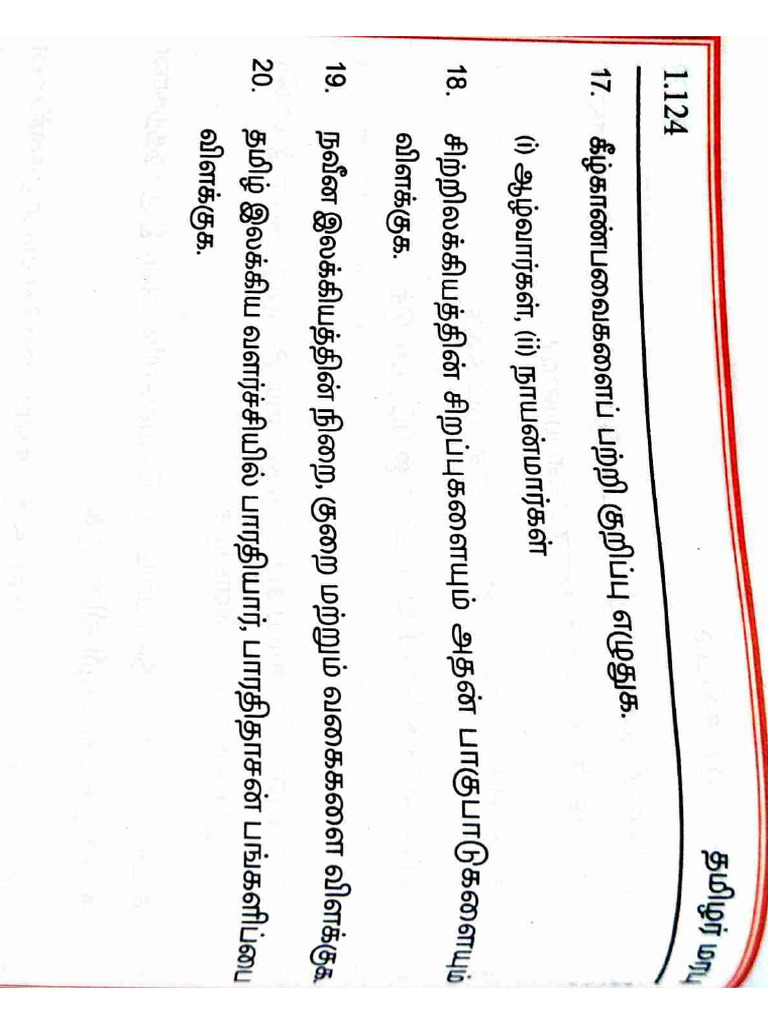 1.124
தமிழர் மரபு
17. கீழ்காண்பவைகளைப் பற்றி குறிப்பு எழுதுக.
(i) ஆழ்வார்கள், (ii) நாயன்மார்கள்
18. சிற்றிலக்கியத்தின் சிறப்புகளையும் அதன் பாகுபாடுகளையும்
விளக்குக.
19. நவீன இலக்கியத்தின் நிறை, குறை மற்றும் வகைகளை விளக்குக
20. தமிழ் இலக்கிய வளர்ச்சியில் பாரதியார், பாரதிதாசன் பங்களிப்பை
விளக்குக.